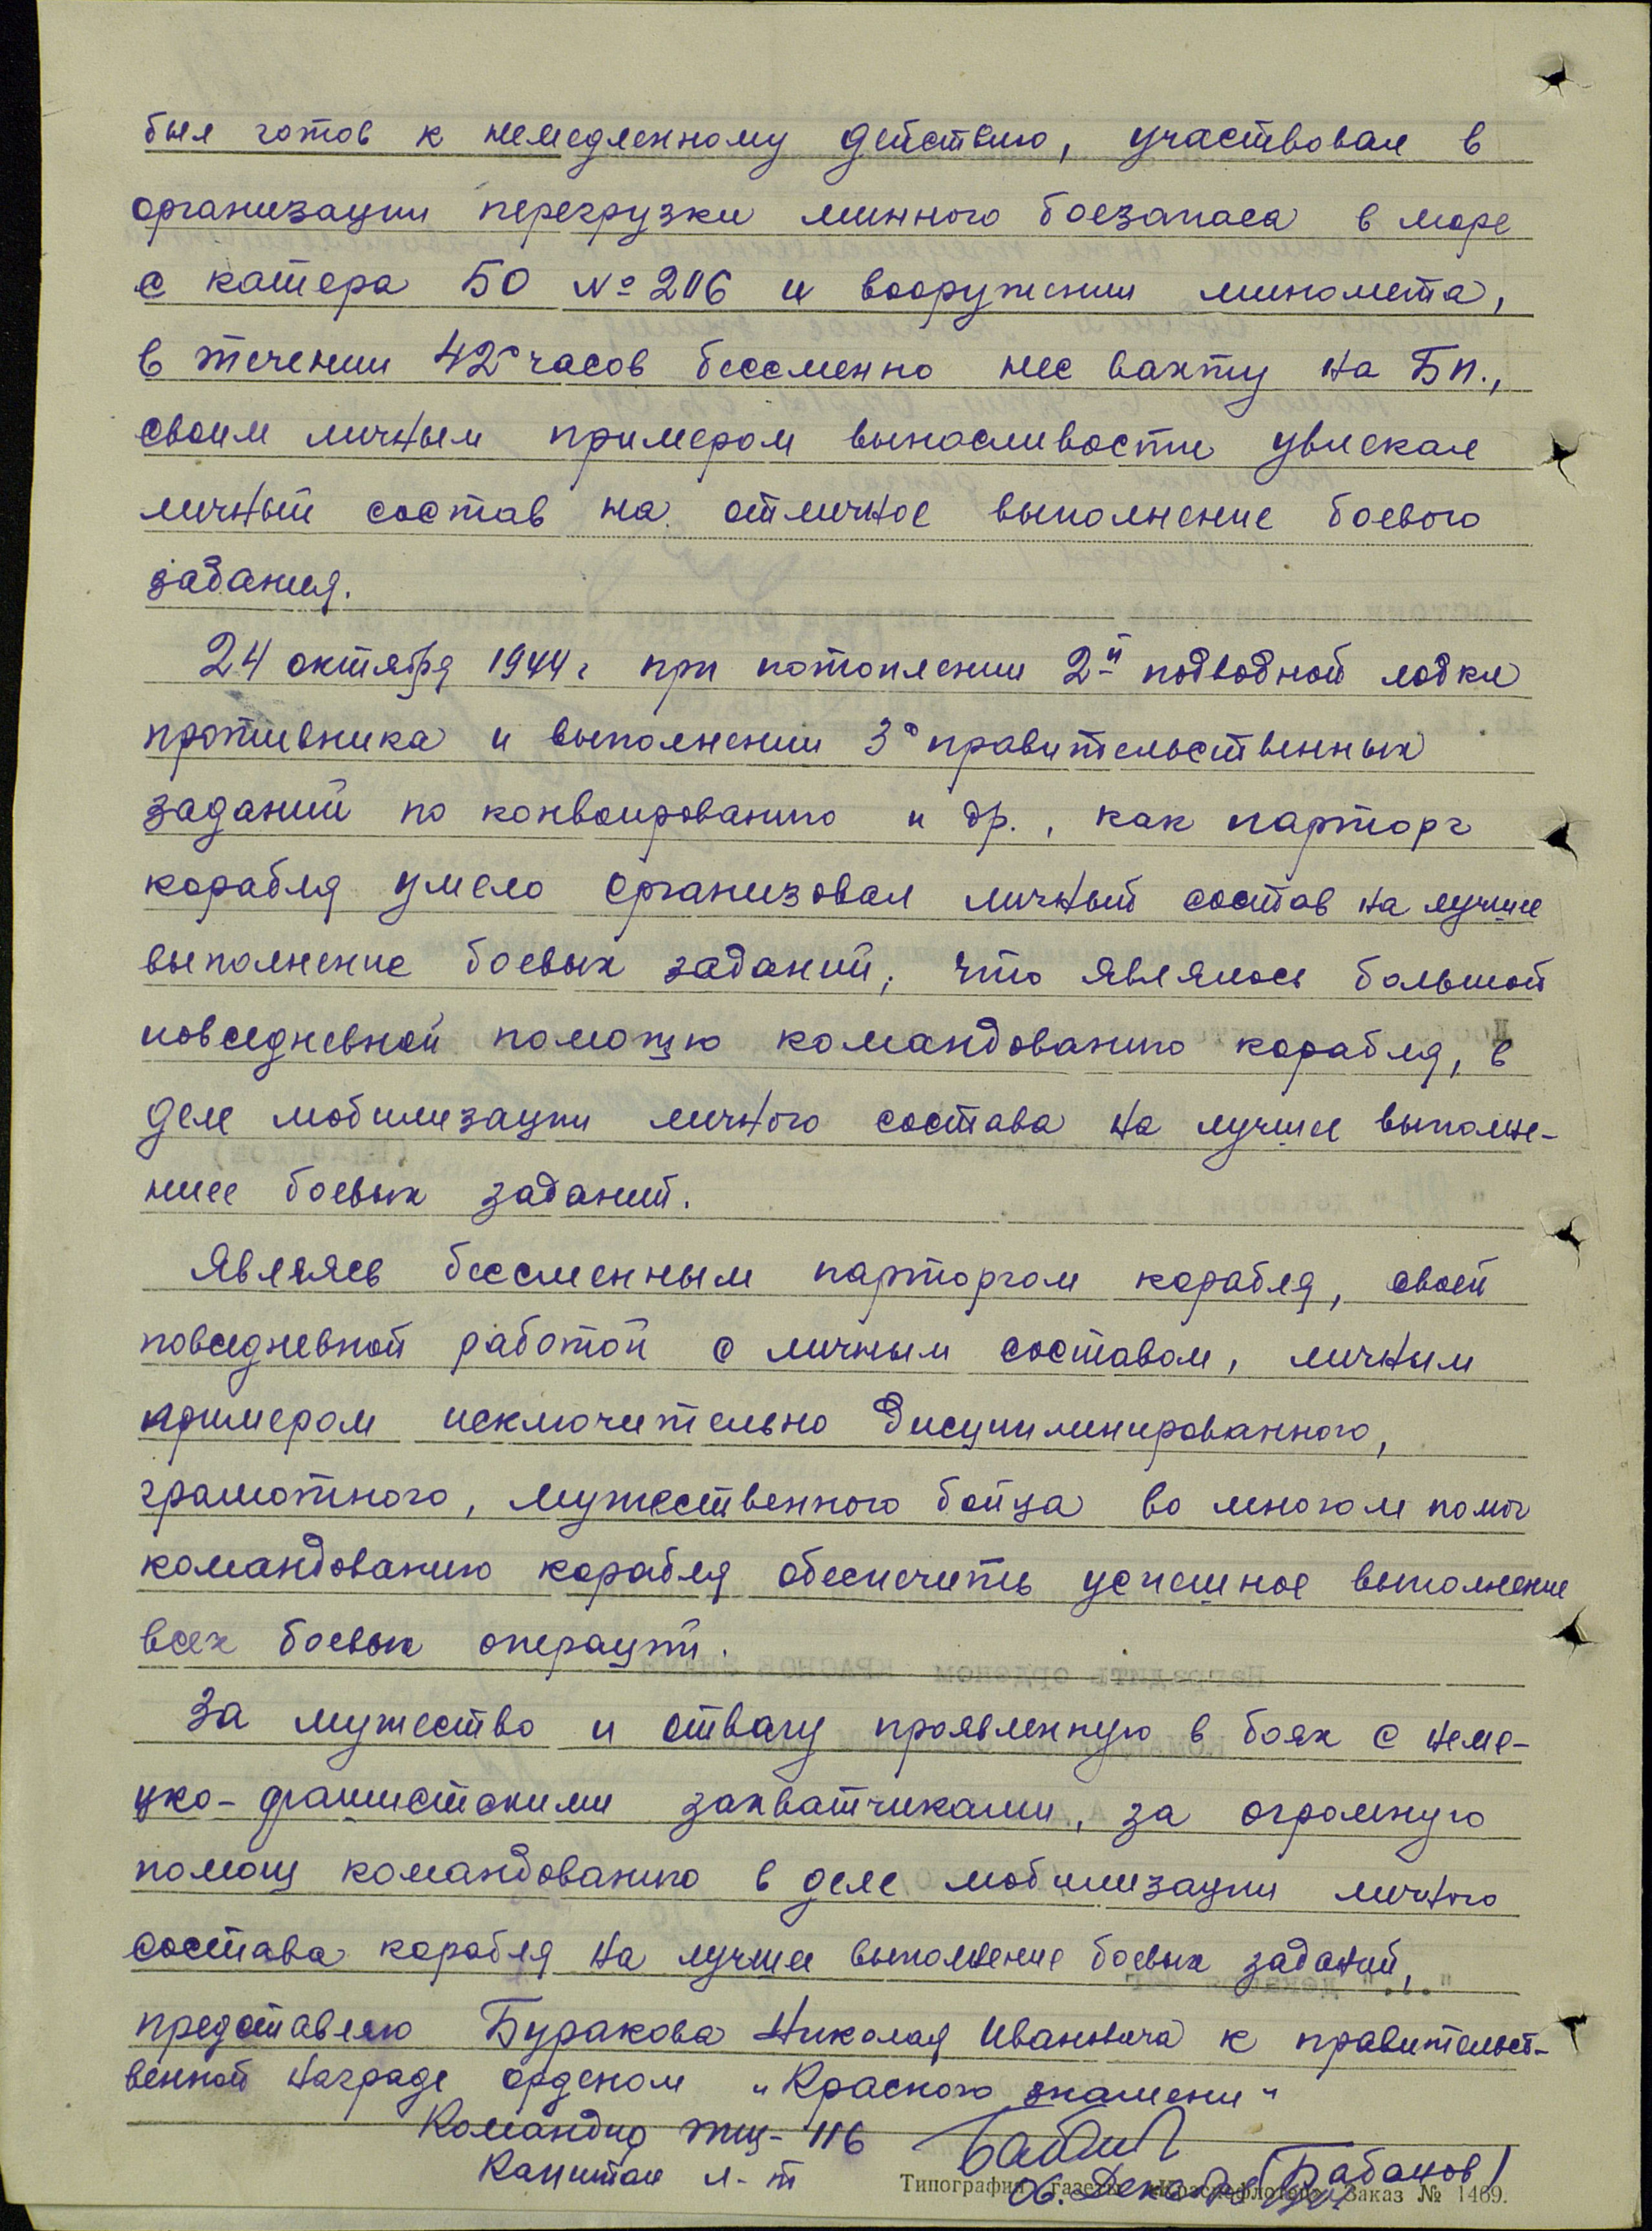 был готов к немедленному действию, участвовал в
организации перегрузки минного боезапаса в море
с катера БО № 206 и вооружении миномета,
в течении 42х часов бессменно нес вахту на БП.,
своим личным примером выносливости увлекал
личный состав на отличное выполнение боевого
задания.
24 октября 1944 г при потоплении 2й подводной лодки
противника и выполнении 3х правительственных
заданий по конвоированию и др., как парторг
корабля умело организовал личный состав на лучшее
выполнение боевых заданий, что являлось большой
повседневной помощю командованию корабля, в
деле мобилизации личного состава на лучшее выполне-
ниее боевых заданий.
Являясь бессменным парторгом корабля, своей
повседневной работой с личным составом, личным
примером исключительно дисциплинированного,
грамотного, мужественного бойца во многом помог
командованию корабля обеспечить успешное выполнение
всех боевых операций.
За мужество и отвагу проявленную в боях с неме-
цко-фашистскими захватчиками, за огромную
помощ командованию в деле мобилизации личного
состава корабля на лучшее выполнение боевых заданий,
представляю Буракова Николая Ивановича к правительст-
венной награде орденом "Красного знамени"
Командир ТЩ-116
Капитан л-т (Бабанов)
06. Декабря
Типография газеты «Краснофлотец» Заказ № 1469.